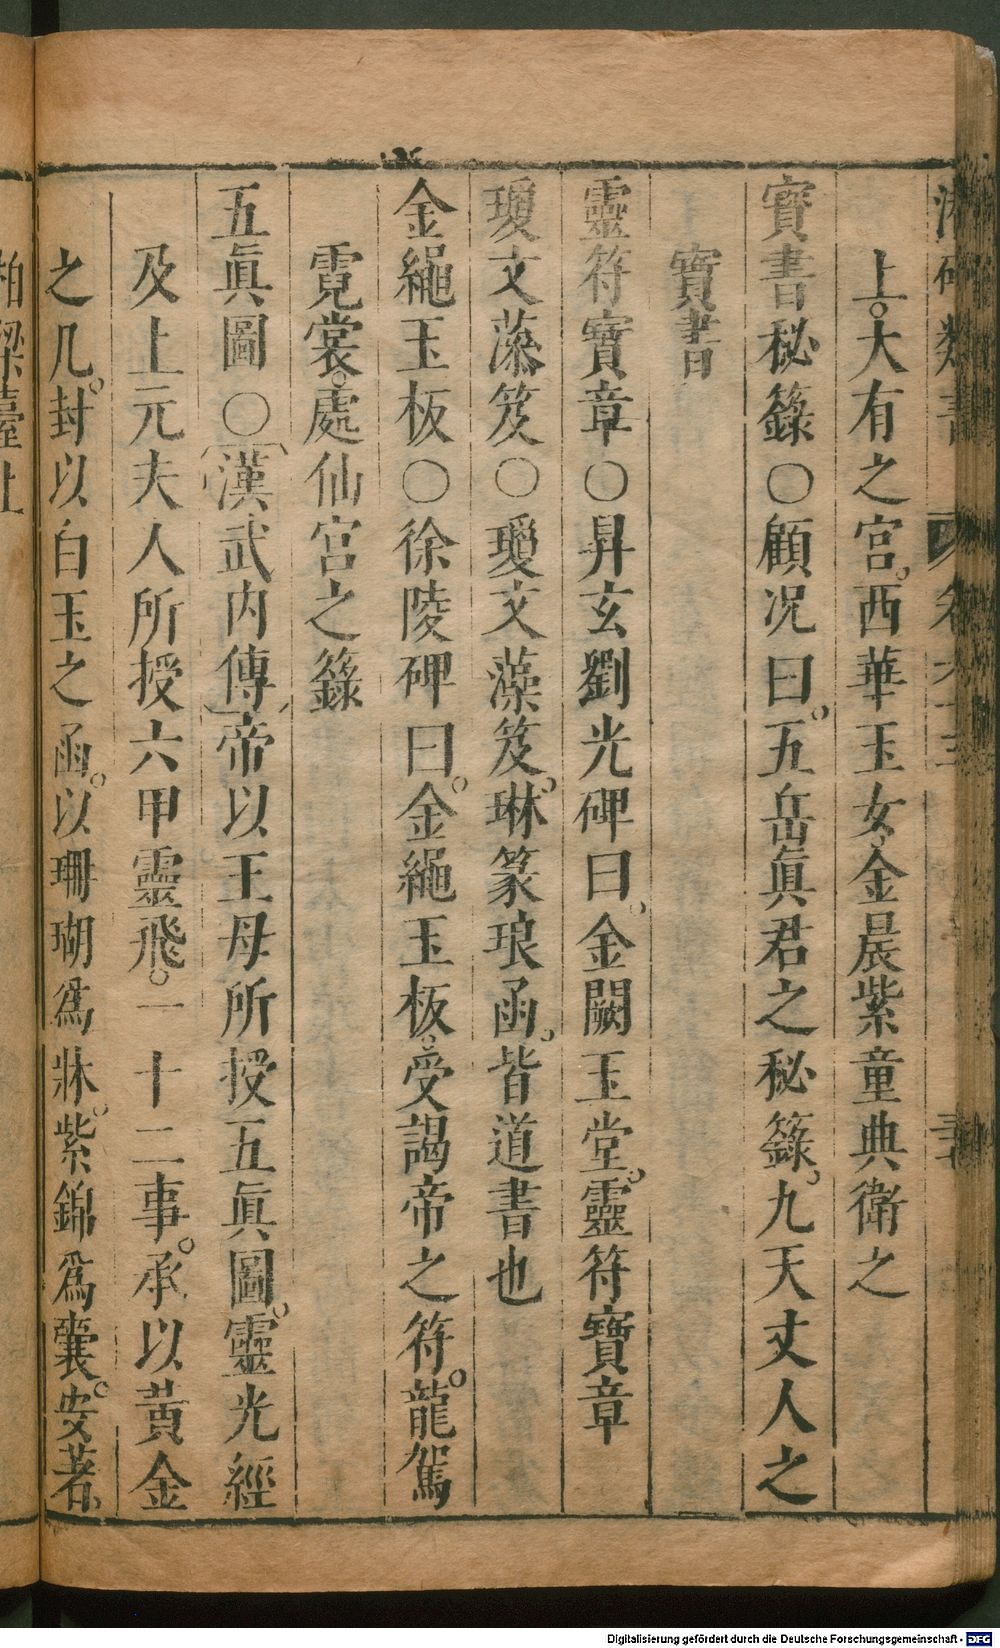 上大有之宮西華玉女金晨紫童典衛之
寶書秘籙〇顧况曰五岳眞君之秘籙九天丈人之
寶書
靈符寶章〇昇玄劉光碑曰金闕玉堂靈符寶章
瓊文藻笈〇瓊文藻笈琳篆琅函皆道書也
金繩玉板〇徐陵碑曰金繩玉板受謁帝之符龍駕
霓裳處仙宮之籙
五眞圖〇漢武内傳帝以王母所授五眞圖靈光經
及上元夫人所授六甲靈飛一十二事承以黃金
之几封以白玉之函以珊瑚爲牀紫錦爲囊安著
柏梁臺上
Digitalisierung gefördert durch die Deutsche Forschungsgemeinschaft - DFG